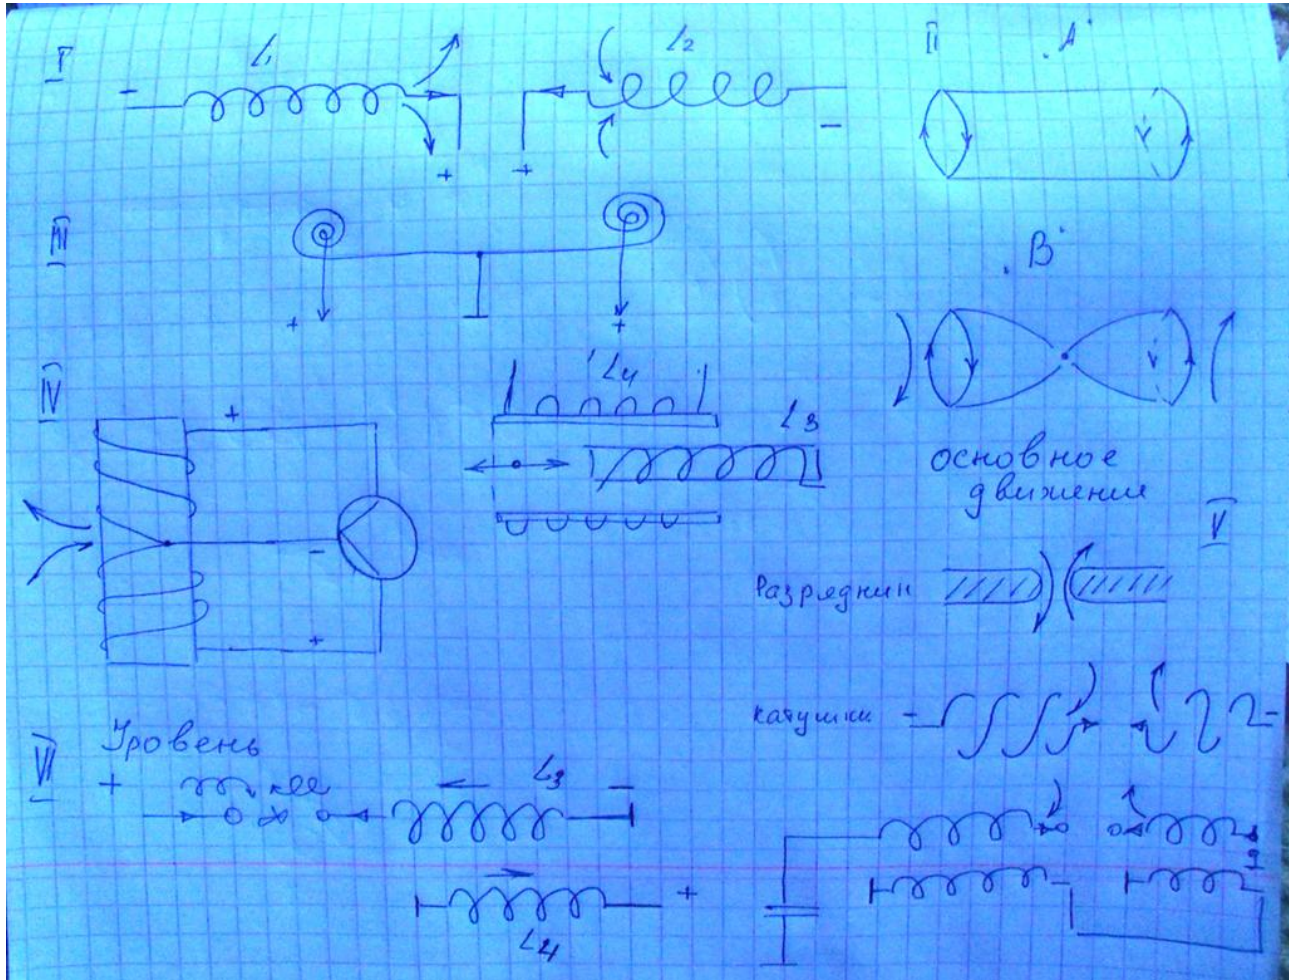 I
L1
L2
II
"A"
-
+
+
-
III
"B"
+
+
IV
+
L4
L3
-
+
основное
движение
V
Разрядник
Катушки
-
-
VI
Уровень
+
L3
-
L4
+